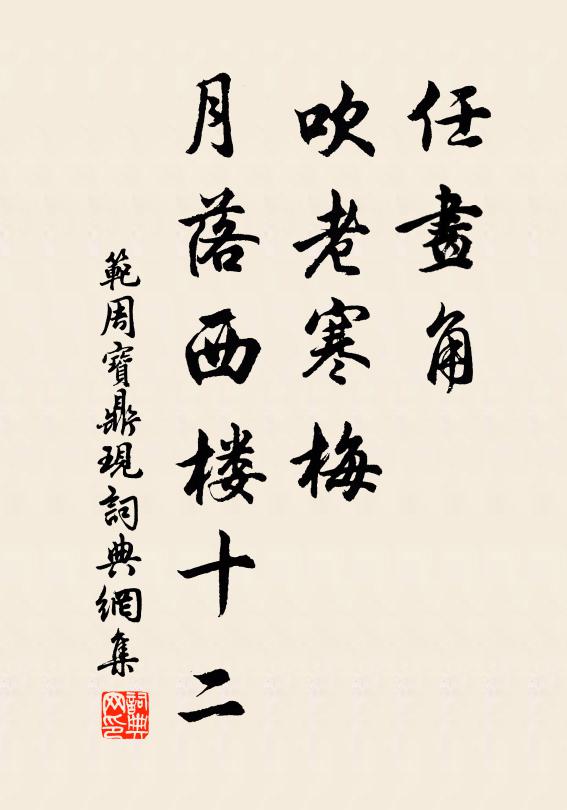 任畫角
吹老寒梅
月落西楼十二
範周寶鼎現詞典網集
詞典网印